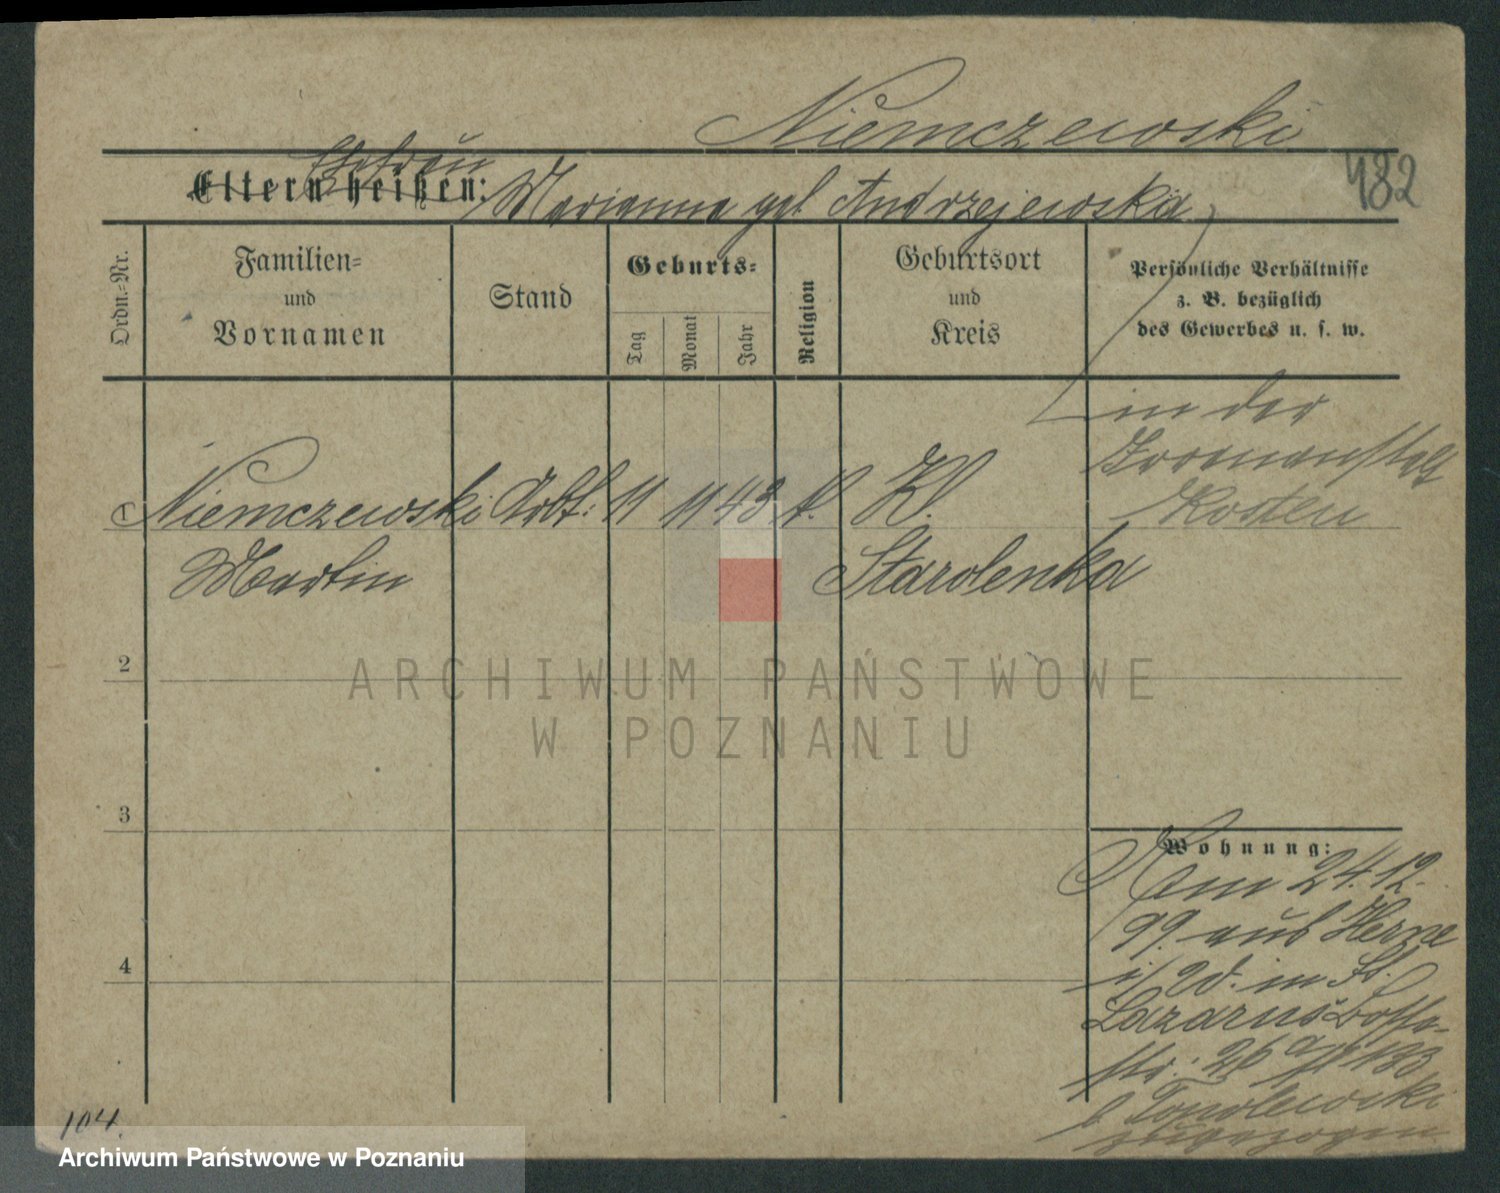 Niemczewski
482
Ehefrau
Eltern heißen: Marianna geb. Andrzejewska
Ordn.-Nr.
Familien-
und
Vornamen
Stand
Geburts-
Tag
Monat
Jahr
Religion
Geburtsort
und
Kreis
Persönliche Verhältnisse
z. B. bezüglich
des Gewerbes u. s. w.
in der
Irrenanstalt
Kosten
1 Niemczewski Arbt. 11 11 43 k. Kl.
Martin Starolenka
2
ARCHIWUM PAŃSTWOWE
W POZNANIU
3
4
Wohnung:
am 24.12.
99. aus Herne
i/ in St.
Lazarus
str. 26
b. Topolewski
zugezogen
104.
Archiwum Państwowe w Poznaniu